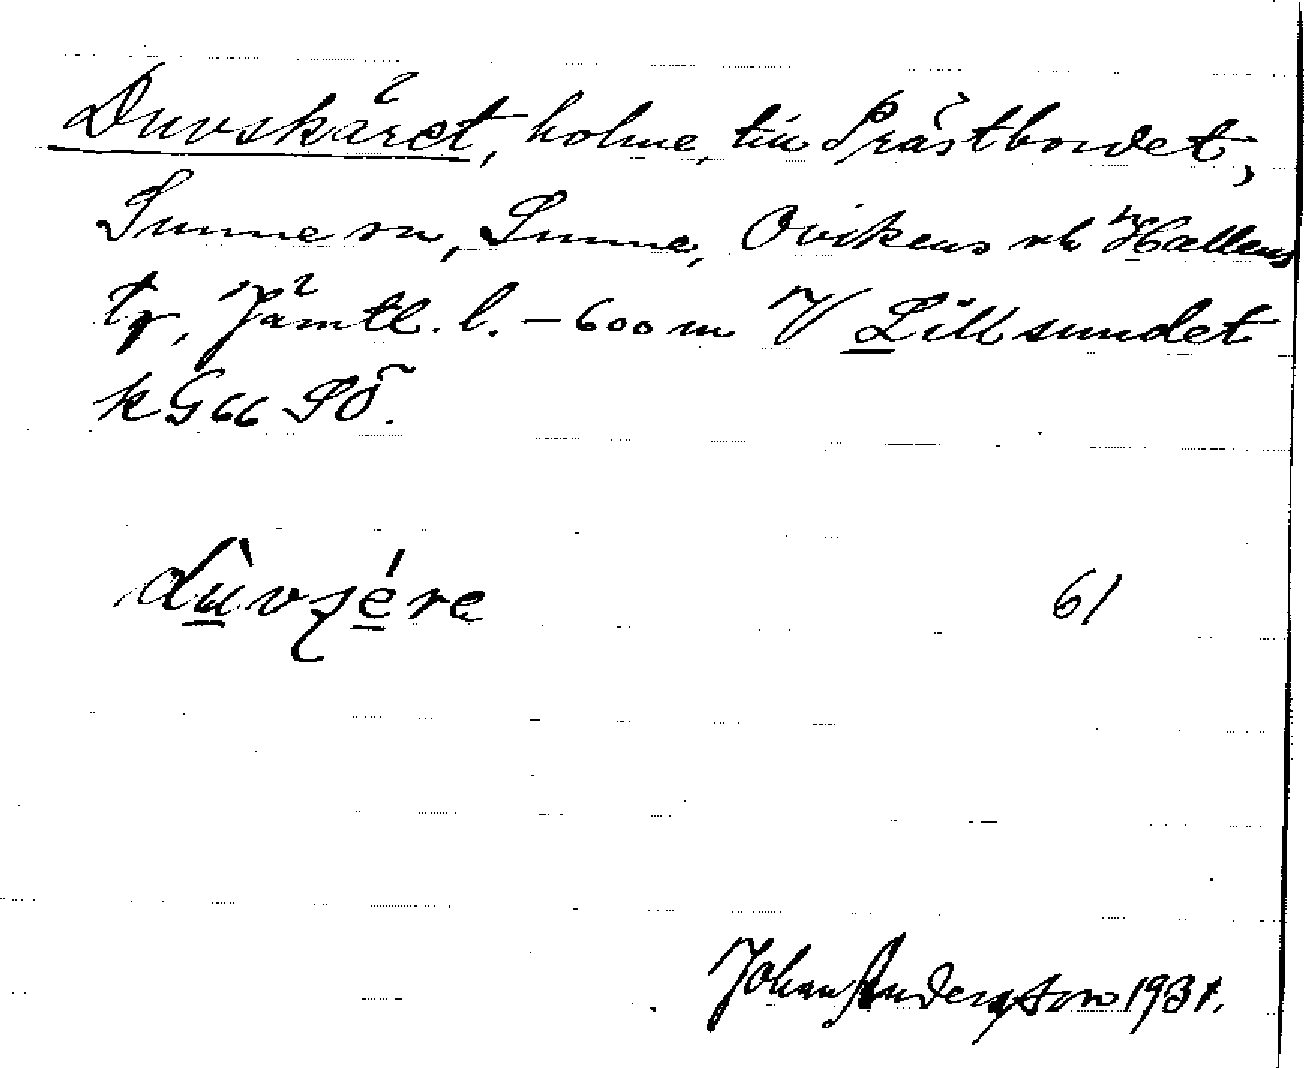 Duvskäret, holme, till Prästbordet,
Sunne sn, Sunne, Ovikens o. Hallens
tg, Jämtl. l. – 600 m V Lillsundet
k G 66 SÖ.
61
Johan Anderson 1931.